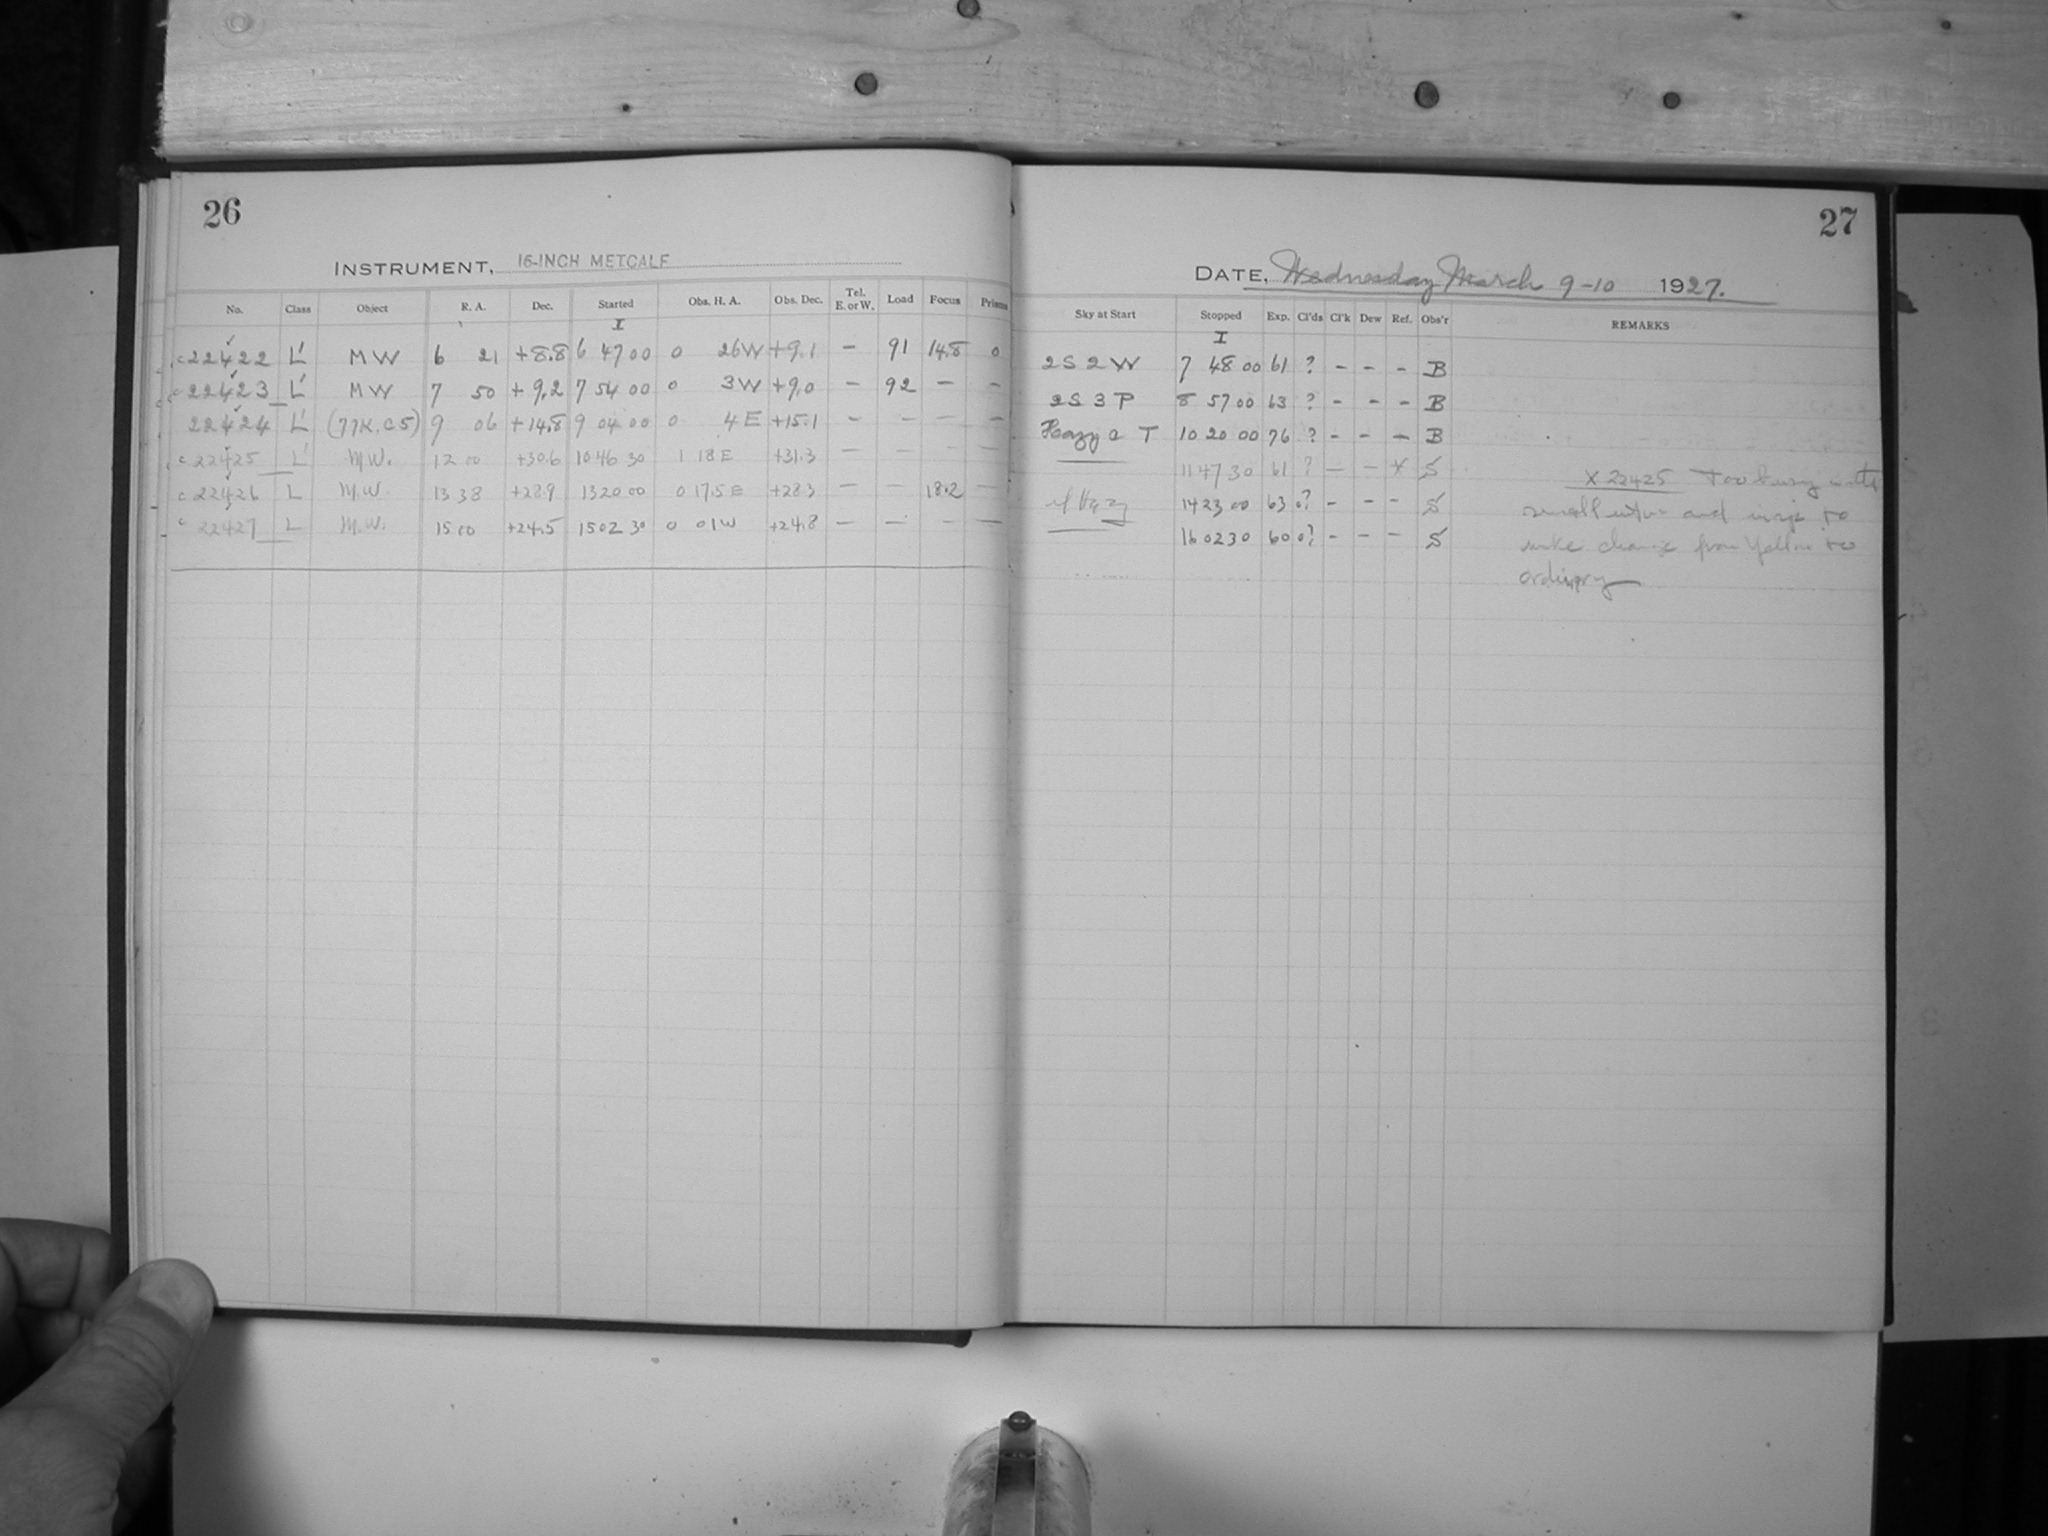 26
INSTRUMENT, 16-INCH METCALF
No. Class Object R. A. Dec. Started Obs. H. A. Obs. Dec. Tel. E. or W. Load Focus Prisms
I
c22422 L' MW 6 21 +8.8 6 47 00 0 26W +9.1 — 91 14.8 0
c22423 L' MW 7 50 +9.2 7 54 00 0 3W +9.0 — 92 — —
22424 L' (77K.C5) 9 06 +14.8 9 04 00 0 4E +15.1 — — — —
c22425 L' M.W. 12 00 +30.6 10 46 30 1 18E +31.3 — — — —
c22426 L M.W. 13 38 +28.9 13 20 00 0 17.5E +28.3 — — 18.2 —
c22427 L M.W. 15 00 +24.5 15 02 30 0 01W +24.8 — — — —
27
DATE, Wednesday March 9-10 1927.
Sky at Start Stopped Exp. Cl'ds Cl'k Dew Ref. Obs'r REMARKS
I
2S2W 7 48 00 61 ? - - - B
2S3P 8 57 00 63 ? - - - B
Hazy a T 10 20 00 76 ? - - - B
11 47 30 61 ? - - X S
Hazy 14 23 00 63 0? - - - S
16 02 30 60 0? - - - S
X 22425 Too busy with
small and to
make change from Yellow to
ordinary